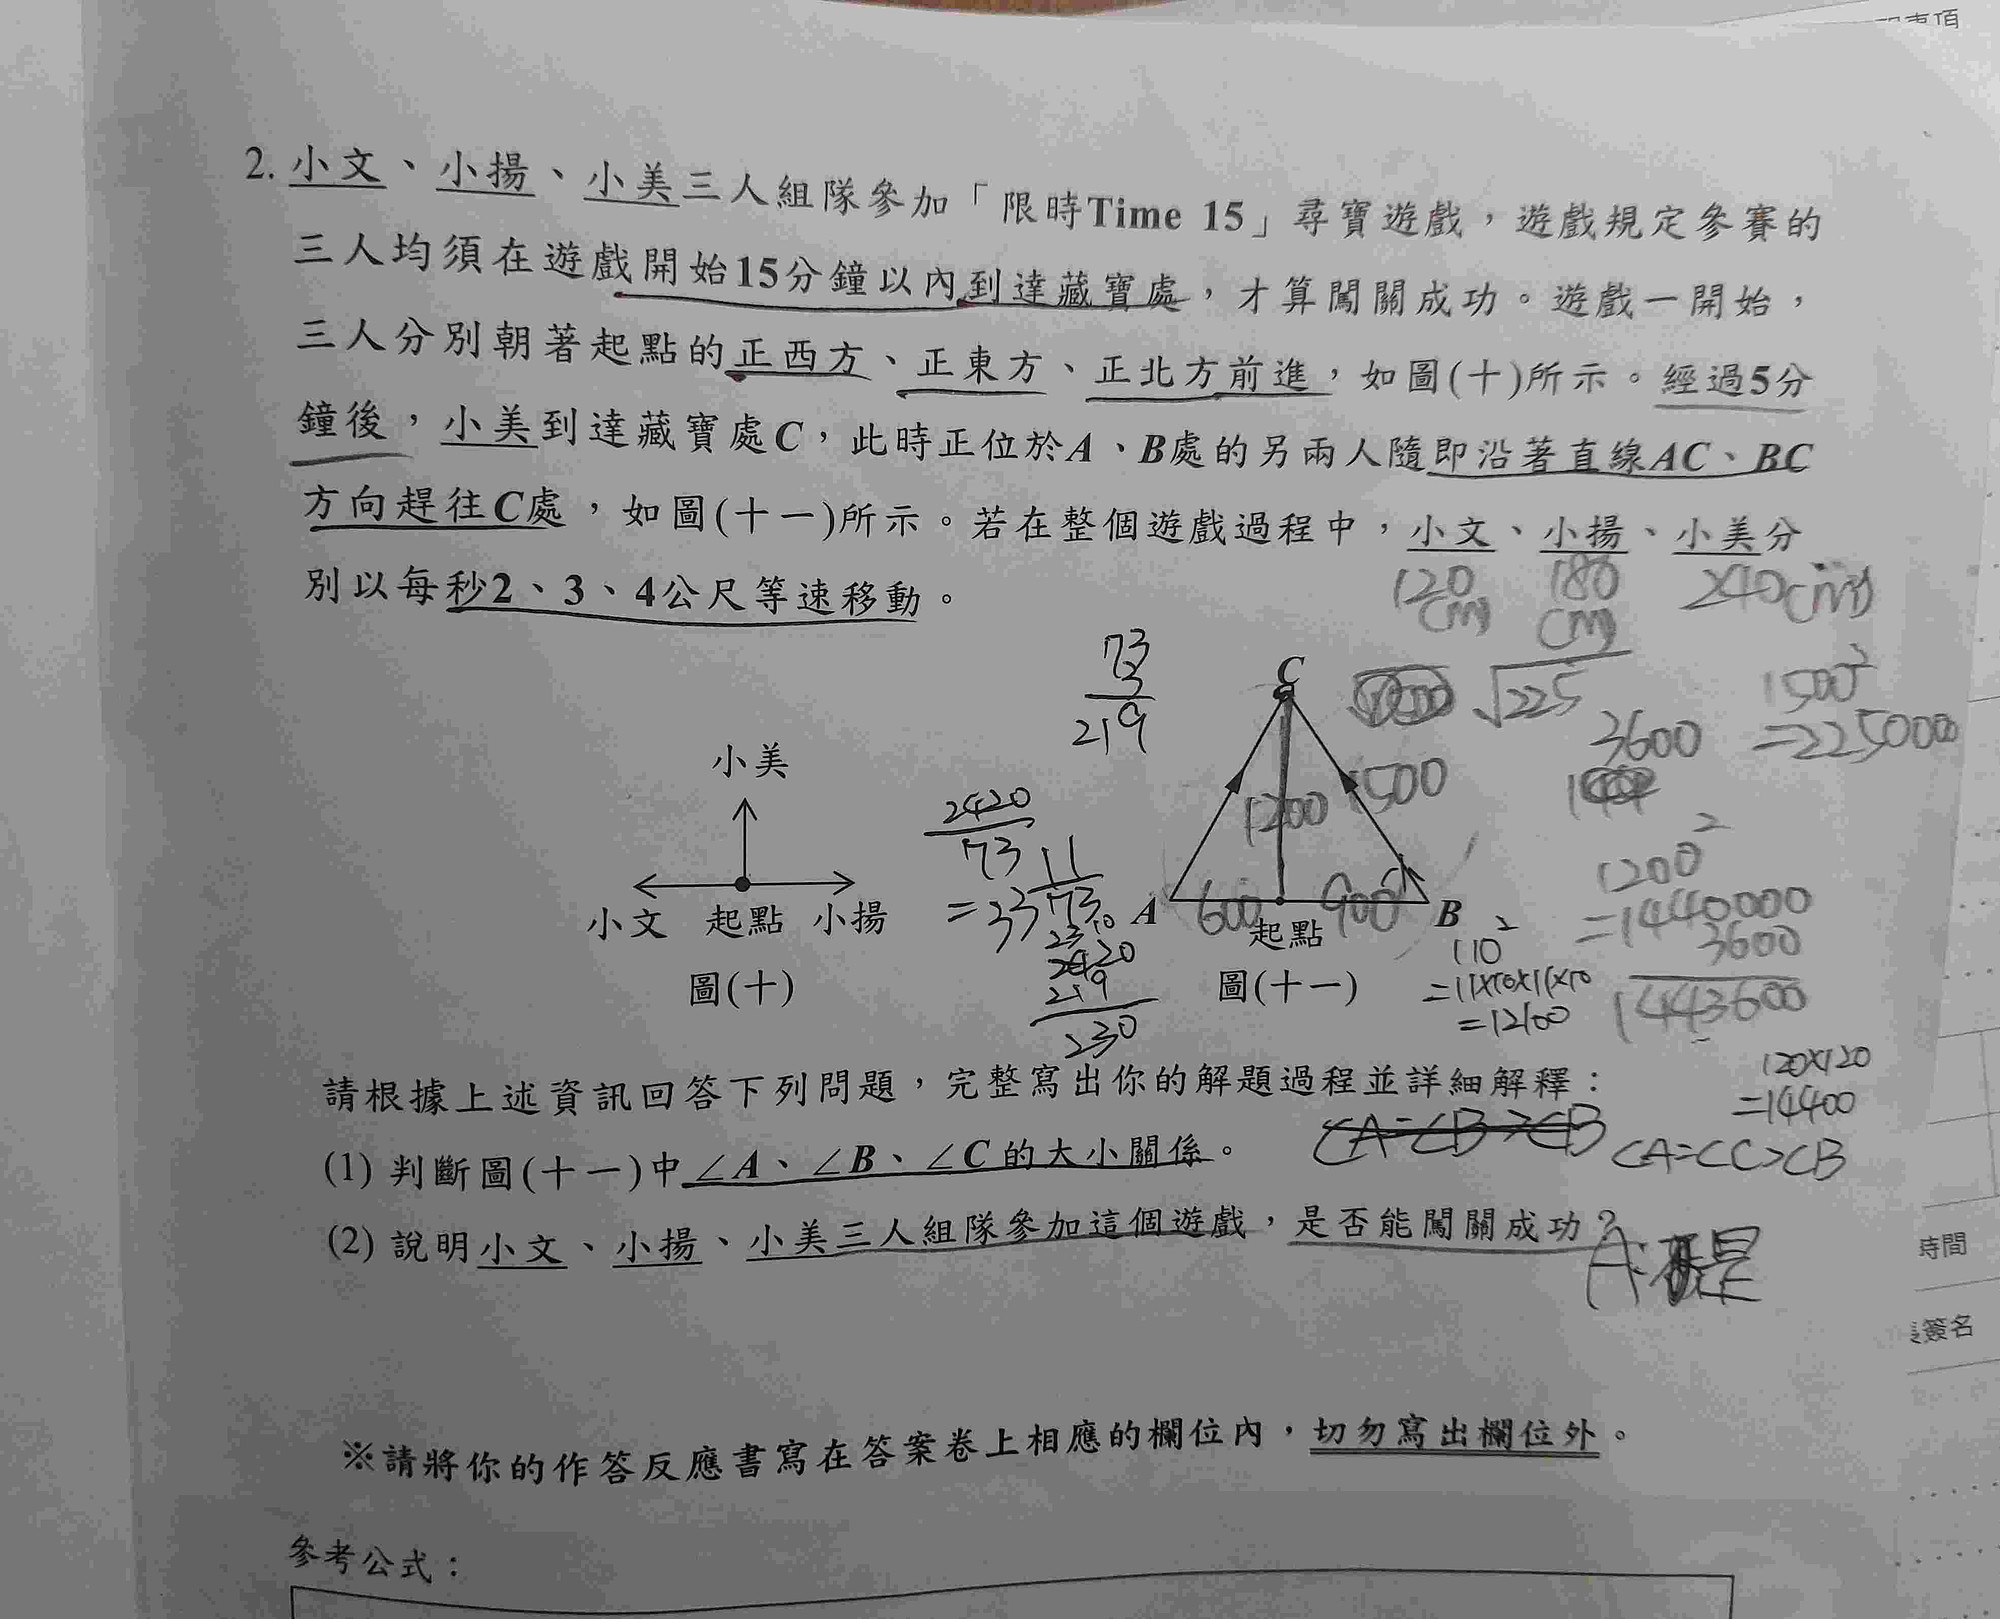 事項
2. 小文、小揚、小美三人組隊參加「限時Time 15」尋寶遊戲，遊戲規定參賽的
三人均須在遊戲開始15分鐘以內到達藏寶處，才算闖關成功。遊戲一開始，
三人分別朝著起點的正西方、正東方、正北方前進，如圖(十)所示。經過5分
鐘後，小美到達藏寶處C，此時正位於A、B處的另兩人隨即沿著直線AC、BC
方向趕往C處，如圖(十一)所示。若在整個遊戲過程中，小文、小揚、小美分
別以每秒2、3、4公尺等速移動。
120 180 240(m)
(m) (m)
73
3
219
C
√225
1500²
3600 =2250000
小美
1200 1500
2420
73
11
=33 73
1200²
=1440000
3600
1443600
小文 起點 小揚
A 600 起點 900 B
2420
219
230
110²
=11×10×11×10
=12100
圖(十) 圖(十一)
120×120
=14400
請根據上述資訊回答下列問題，完整寫出你的解題過程並詳細解釋：
(1) 判斷圖(十一)中∠A、∠B、∠C的大小關係。
∠A=∠B>∠B ∠A=∠C>∠B
(2) 說明小文、小揚、小美三人組隊參加這個遊戲，是否能闖關成功？
A:是
時間
簽名
※請將你的作答反應書寫在答案卷上相應的欄位內，切勿寫出欄位外。
參考公式：